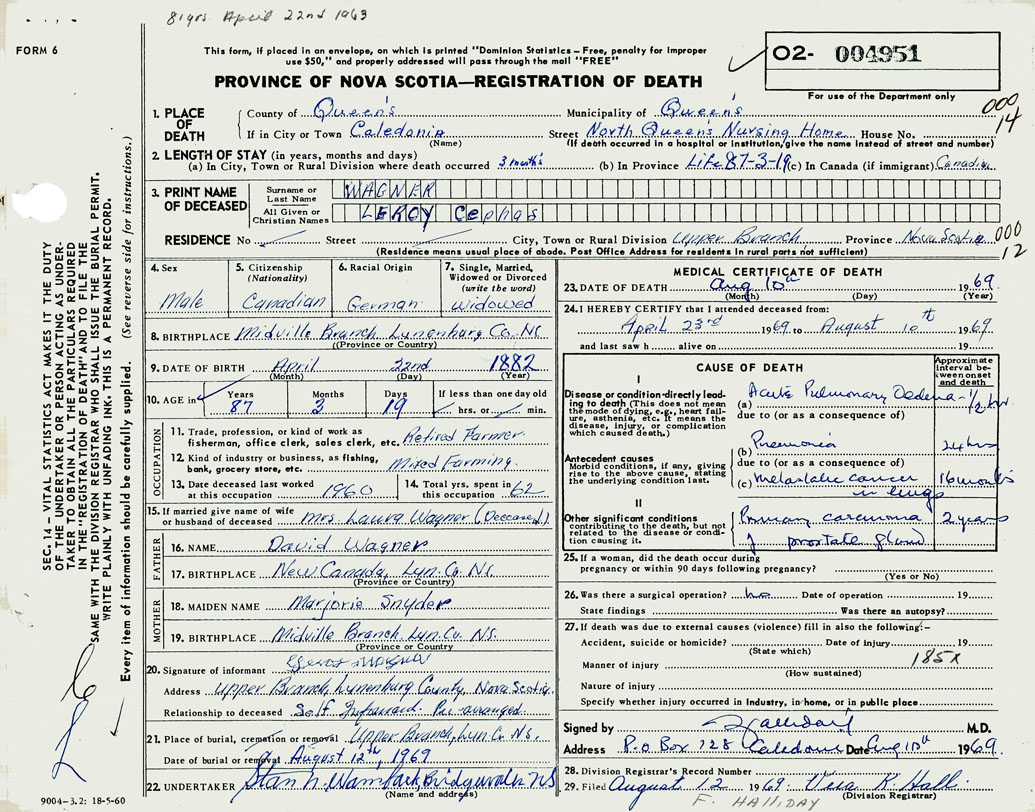 81 yrs. April 22nd 1963
FORM 6
This form, if placed in an envelope, on which is printed "Dominion Statistics – Free, penalty for improper
use $50," and properly addressed will pass through the mail "FREE"
PROVINCE OF NOVA SCOTIA—REGISTRATION OF DEATH
O2- 004951
For use of the Department only
000
14
1. PLACE OF DEATH
County of Queen's Municipality of Queen's
If in City or Town Caledonia Street North Queen's Nursing Home House No.
(Name) (If death occurred in a hospital or institution, give the name instead of street and number)
2. LENGTH OF STAY (in years, months and days)
(a) In City, Town or Rural Division where death occurred 3 months (b) In Province Life 87-3-19 (c) In Canada (if immigrant) Canadian
3. PRINT NAME OF DECEASED
Surname or Last Name WAGNER
All Given or Christian Names LEROY Cephas
RESIDENCE No Street City, Town or Rural Division Upper Branch Province Nova Scotia
(Residence means usual place of abode. Post Office Address for residents in rural parts not sufficient)
000
12
4. Sex
Male
5. Citizenship (Nationality)
Canadian
6. Racial Origin
German
7. Single, Married, Widowed or Divorced (write the word)
Widowed
8. BIRTHPLACE Midville Branch Lunenburg Co. N.S.
(Province or Country)
9. DATE OF BIRTH April 22nd 1882
(Month) (Day) (Year)
10. AGE in
Years Months Days If less than one day old
87 3 19 hrs. or min.
OCCUPATION
11. Trade, profession, or kind of work as
fisherman, office clerk, sales clerk, etc. Retired Farmer
12. Kind of industry or business, as fishing,
bank, grocery store, etc. Mixed Farming
13. Date deceased last worked
at this occupation 1960
14. Total yrs. spent in
this occupation 62
15. If married give name of wife
or husband of deceased Mrs. Laura Wagner (Deceased)
FATHER
16. NAME David Wagner
17. BIRTHPLACE New Canada, Lun. Co. N.S.
(Province or Country)
MOTHER
18. MAIDEN NAME Marjorie Snyder
19. BIRTHPLACE Midville Branch, Lun. Co. N.S.
(Province or Country)
20. Signature of informant
Address Upper Branch, Lunenburg County, Nova Scotia
Relationship to deceased Self Informant Pre-arranged
21. Place of burial, cremation or removal Upper Branch, Lun. Co. N.S.
Date of burial or removal August 12th, 1969
22. UNDERTAKER Bridgewater NS
(Name and address)
9004-3.2: 18-5-60
MEDICAL CERTIFICATE OF DEATH
23. DATE OF DEATH Aug 10th 1969
(Month) (Day) (Year)
24. I HEREBY CERTIFY that I attended deceased from:
April 23rd 1969 to August 10th 1969
and last saw h alive on 19
CAUSE OF DEATH
Approximate interval between onset and death
I
Disease or condition directly leading to death (This does not mean the mode of dying, e.g., heart failure, asthenia, etc. It means the disease, injury, or complication which caused death.)
(a) Acute Pulmonary Oedema 1/2 hr.
due to (or as a consequence of)
(b) Pneumonia 24 hrs
Antecedent causes
Morbid conditions, if any, giving rise to the above cause, stating the underlying condition last.
due to (or as a consequence of)
(c) Metastatic cancer in lungs 16 months
II
Other significant conditions
contributing to the death, but not related to the disease or condition causing it.
Primary carcinoma of prostate gland 2 years
25. If a woman, did the death occur during
pregnancy or within 90 days following pregnancy?
(Yes or No)
26. Was there a surgical operation? no Date of operation 19
State findings Was there an autopsy?
27. If death was due to external causes (violence) fill in also the following:–
Accident, suicide or homicide? Date of injury 19
(State which)
185X
Manner of injury
(How sustained)
Nature of injury
Specify whether injury occurred in Industry, in home, or in public place
Signed by Halliday M.D.
Address P.O Box 128 Caledonia Date Aug 10th 1969
28. Division Registrar's Record Number
29. Filed August 12 1969 Vera K. Hall
(Division Registrar)
F. HALLIDAY
SEC. 14 – VITAL STATISTICS ACT MAKES IT THE DUTY
OF THE UNDERTAKER OR PERSON ACTING AS UNDER-
TAKER TO OBTAIN ALL THE PARTICULARS REQUIRED
IN THE "REGISTRATION OF DEATH" AND TO FILE THE
SAME WITH THE DIVISION REGISTRAR WHO SHALL ISSUE THE BURIAL PERMIT.
WRITE PLAINLY WITH UNFADING INK. THIS IS A PERMANENT RECORD.
Every item of information should be carefully supplied. (See reverse side for instructions.)